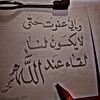 وإني عفوت حتى
لا يكون لنا
لقاء عند الله